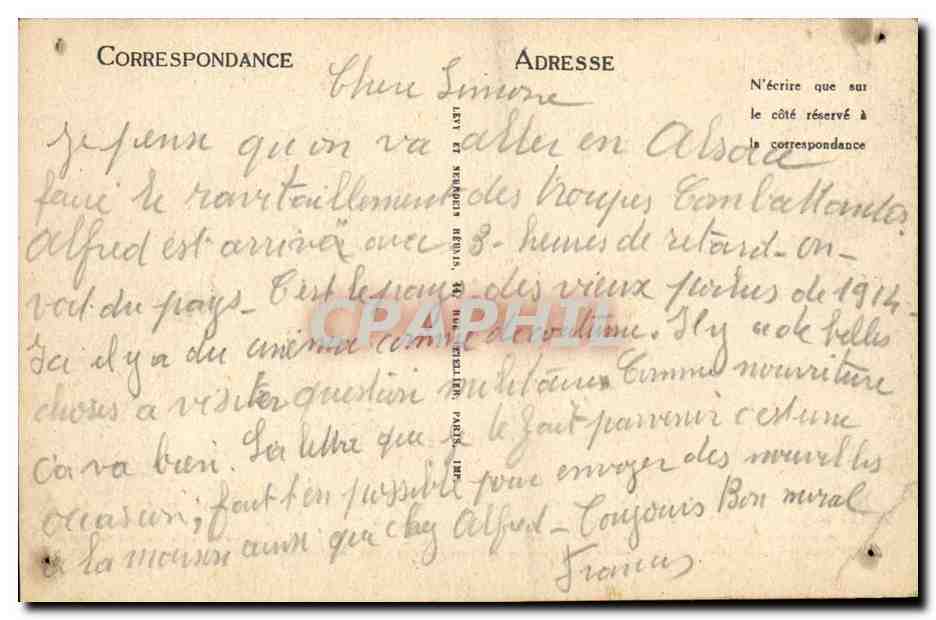 CORRESPONDANCE
ADRESSE
N'écrire que sur
le côté réservé à
la correspondance
Chere Simone
Je pense qu'on va aller en Alsace
faire le ravitaillement des troupes Combattantes
Alfred est arrivé avec 3 - heures de retard - on -
voit du pays - C'est le pays des vieux poilus de 1914 -
Ici il y a du cinema comme de coutume. Il y a de belles
choses a visiter question militaire Comme nourriture
ça va bien. La lettre que je te fait parvenir c'est une
occasion, fait t'en possible pour envoyer des nouvelles
a la maison ainsi que chez Alfred - Toujours Bon moral
Francis
LEVY ET NEURDEIN REUNIS, 44, RUE LETELLIER, PARIS, IMP.
CPAPHIL